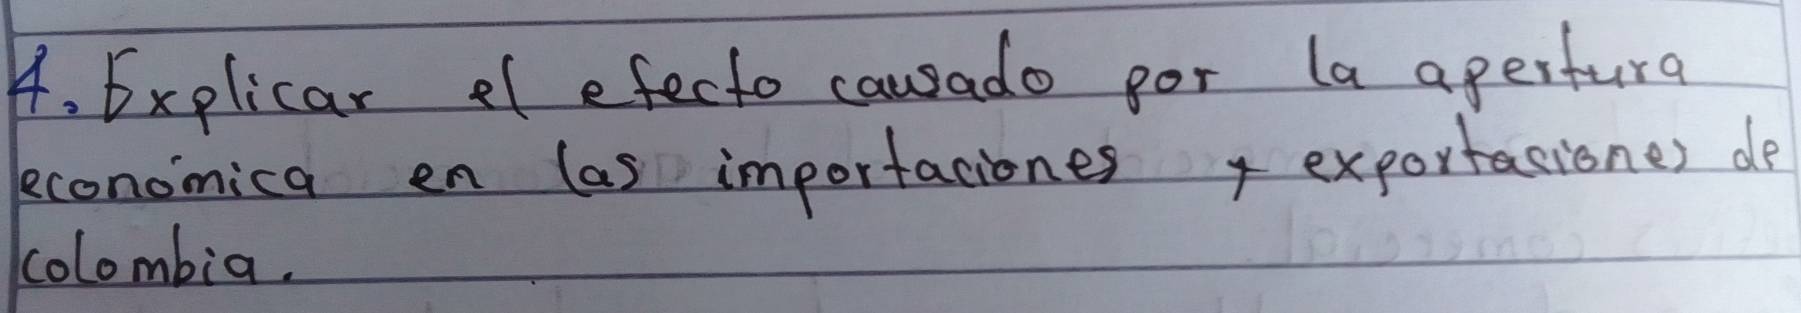 4. Explicar el efecto causado por la apertura
económica en las importaciones y exportaciones de
colombia.